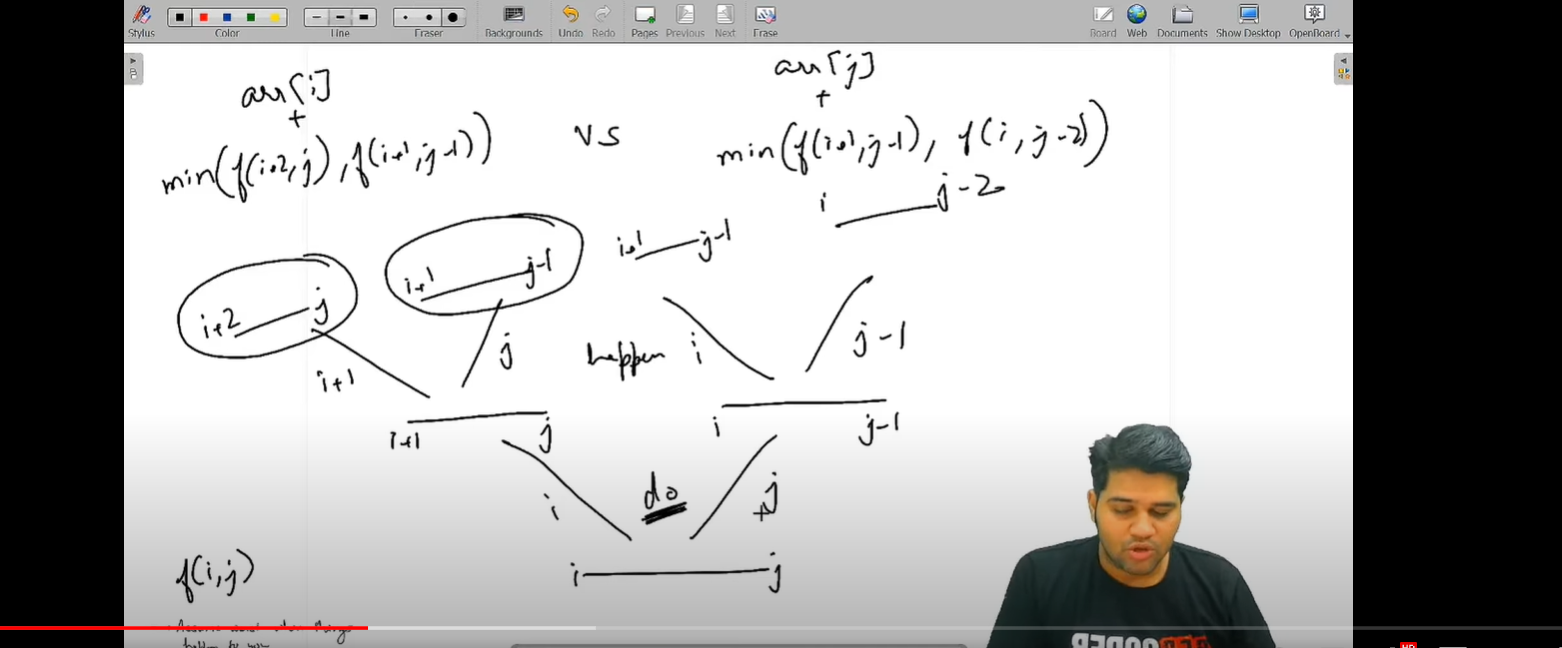 Stylus Color Line Eraser Backgrounds Undo Redo Pages Previous Next Erase Board Web Documents Show Desktop OpenBoard
arr[i]
+
min(f(i+2,j),f(i+1,j-1))
vs
arr[j]
+
min(f(i+1,j-1), f(i,j-2))
i j-2
i+1 j-1
i+1 j-1
i+2 j
i+1
j
happen
i
j-1
i+1 j
i j-1
i
do
+j
i j
f(i,j)
HD